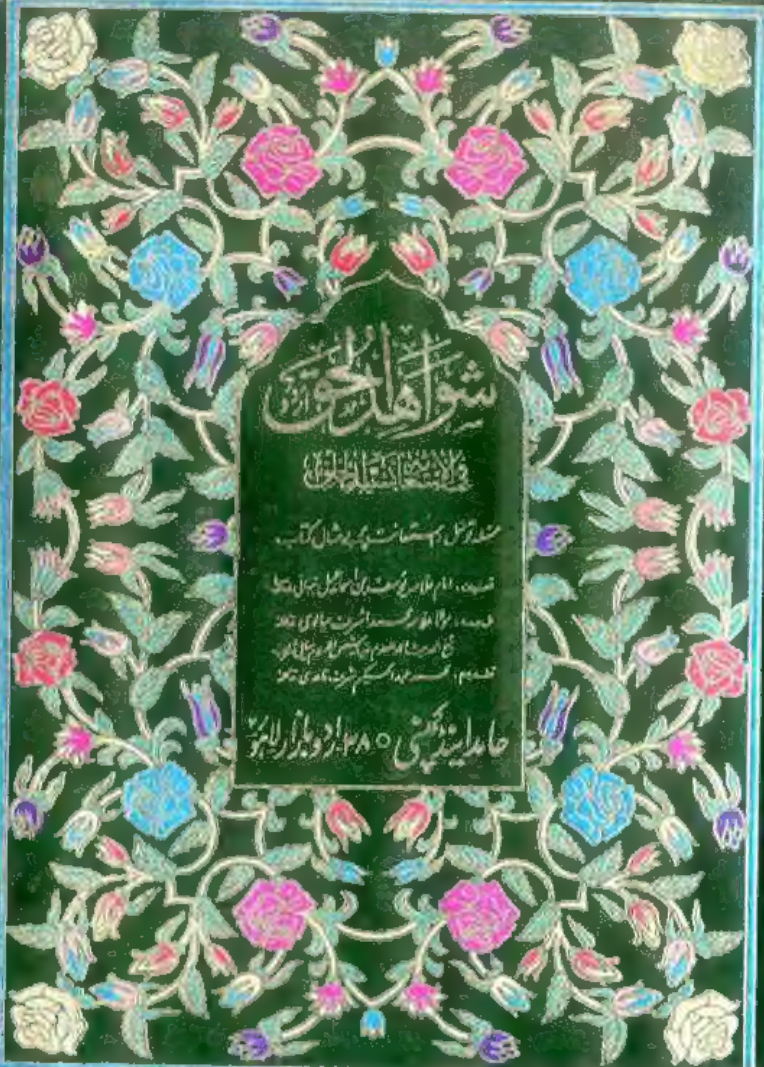 شواهد الحق اردو
فی الاستغاثة بسید الخلق
مسئلہ توسل و استعانت پر بے مثال کتاب
امام علامہ یوسف بن اسماعیل نبہانی
مولانا علامہ محمد اشرف سیالوی
شیخ الحدیث
تقدیم: محمد عبدالحکیم شرف قادری
حامد اینڈ کمپنی ○ ۳۸۔ اردو بازار لاہور